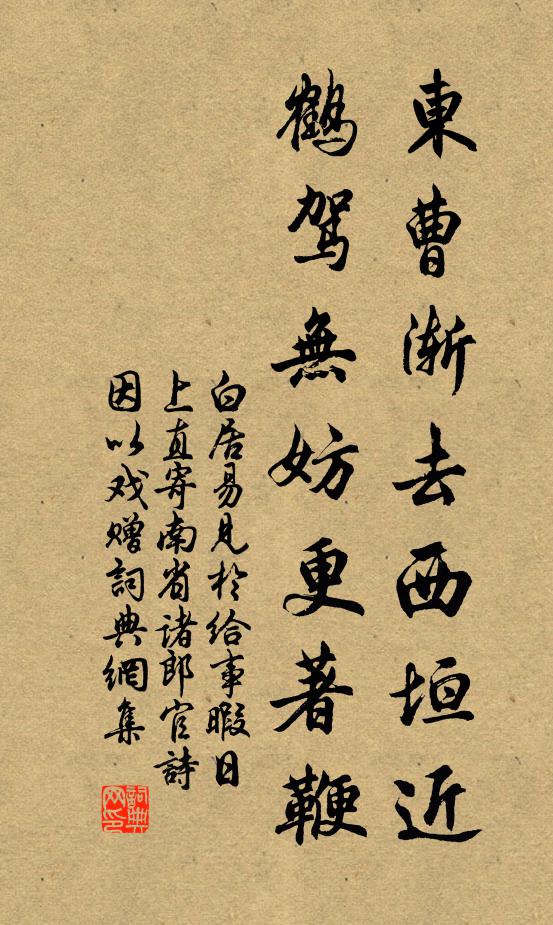 東曹漸去西垣近
鶴駕無妨更著鞭
白居易見於给事暇日
上直寄南省诸郎官詩
因以戏赠詞典網集
詞典网印